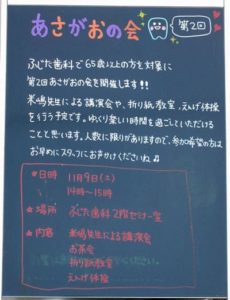 あさがおの会 第2回
ふじた歯科で65歳以上の方を対象に
第2回あさがおの会を開催します!!
米嶋先生による講演会や、折り紙教室、えんげ体操
を行う予定です。ゆっくり楽しい時間を過ごしていただける
ことと思います。人数に限りがありますので、参加希望の方は
お早めにスタッフにお声がけくださいね♫
★日時 11月9日(土)
14時〜15時
★場所 ふじた歯科2階セミナー室
★内容 米嶋先生による講演会
お茶会
折り紙教室
えんげ体操